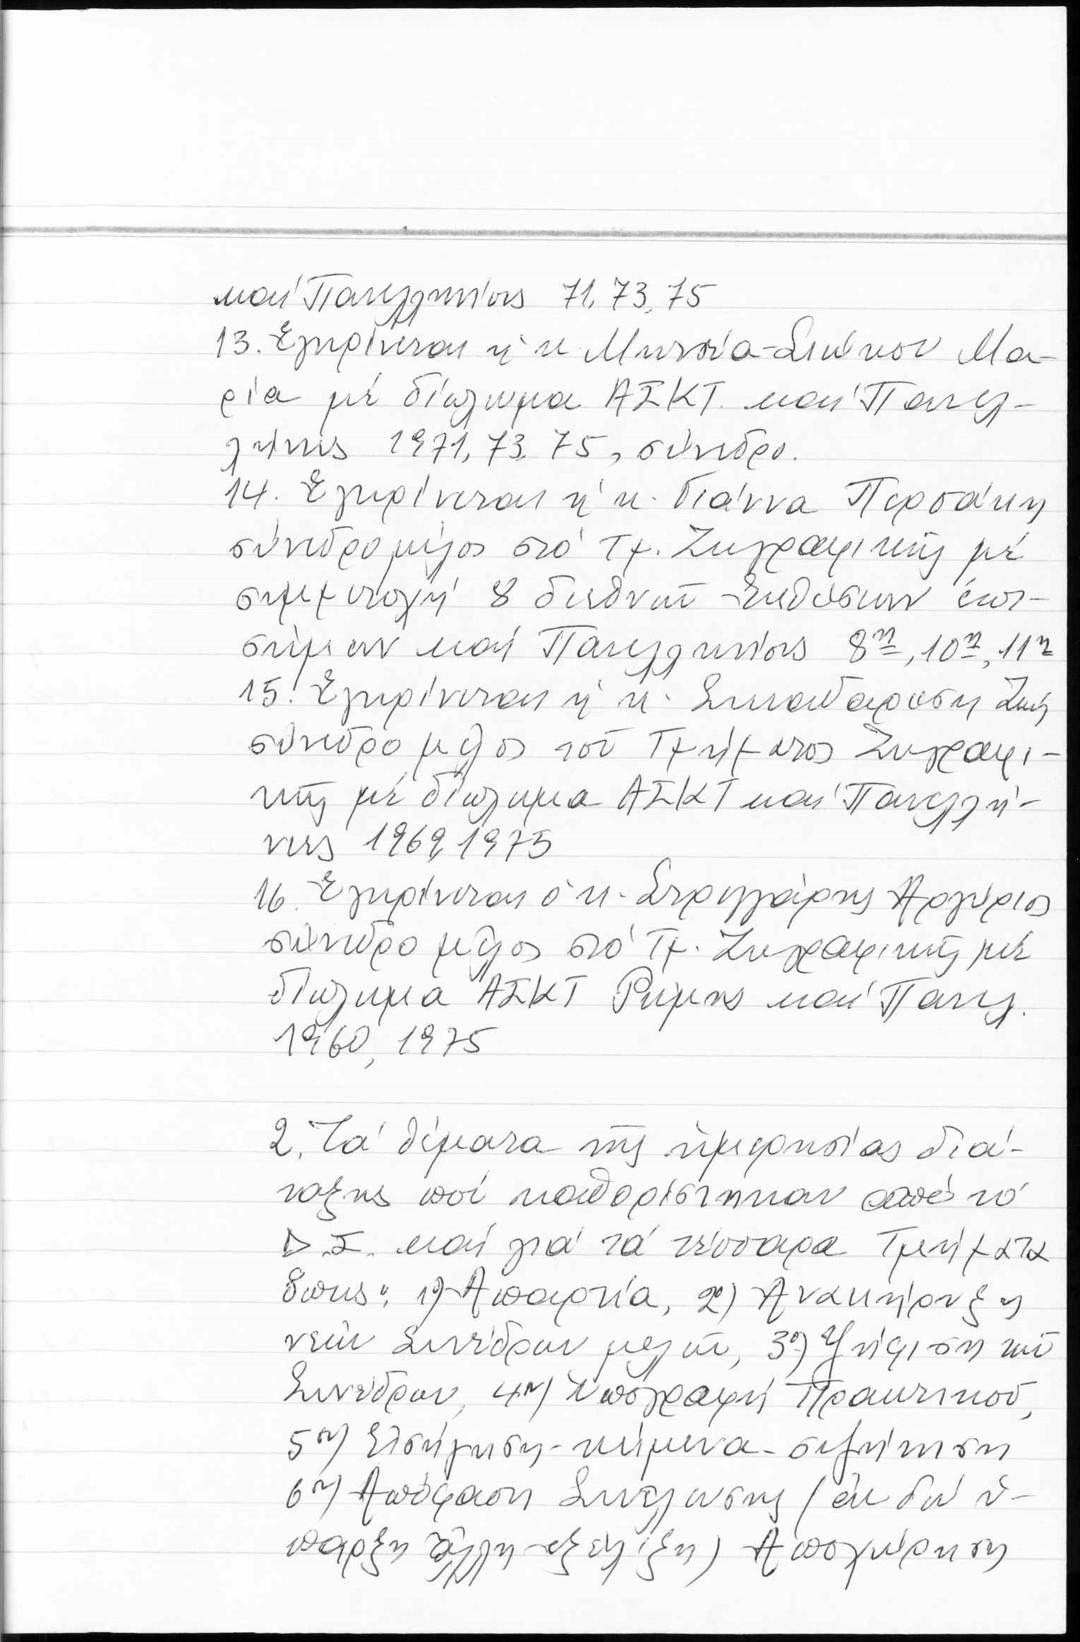 καί Πανελληνίους 71, 73, 75
13. Ἐγκρίνεται ἡ κ. Μα-
ρία μέ δίπλωμα ΑΣΚΤ. καί Πανελ-
λήνιες 1971, 73, 75, σύνεδρο.
14. Ἐγκρίνεται ἡ κ. Γιάννα Περσάκη
σύνεδρο μέλος στό Τμ. Ζωγραφικῆς μέ
συμμετοχή 8 διεθνῶν Ἐκθέσεων ἐπι-
σήμων καί Πανελληνίους 8η, 10η, 11η
15. Ἐγκρίνεται ἡ κ. Ζωή
σύνεδρο μέλος τοῦ Τμήματος Ζωγραφι-
κῆς μέ δίπλωμα ΑΣΚΤ καί Πανελλή-
νιες 1969, 1975
16. Ἐγκρίνεται ὁ κ. Ἀργύριος
σύνεδρο μέλος στό Τμ. Ζωγραφικῆς μέ
δίπλωμα ΑΣΚΤ Ρώμης καί Πανελ.
1960, 1975
2. Τά θέματα τῆς ἡμερησίας διά-
ταξης πού καθορίστηκαν ἀπό τό
Δ.Σ. καί γιά τά τέσσερα Τμήματα
ὅπως: 1ο) Ἀπαρτία, 2ο) Ἀνακήρυξη
νέων Συνέδρων μελῶν, 3ο) Ψήφιση τῶν
Συνέδρων, 4ον) Ὑπογραφή Πρακτικοῦ,
5ον) Εἰσήγηση - κείμενα - συζήτηση
6ον) Ἀπόφαση Συνέλευσης (ἐάν δέν ὑ-
πάρξη ἄλλη ἐξέλιξη) Ἀποχώρηση